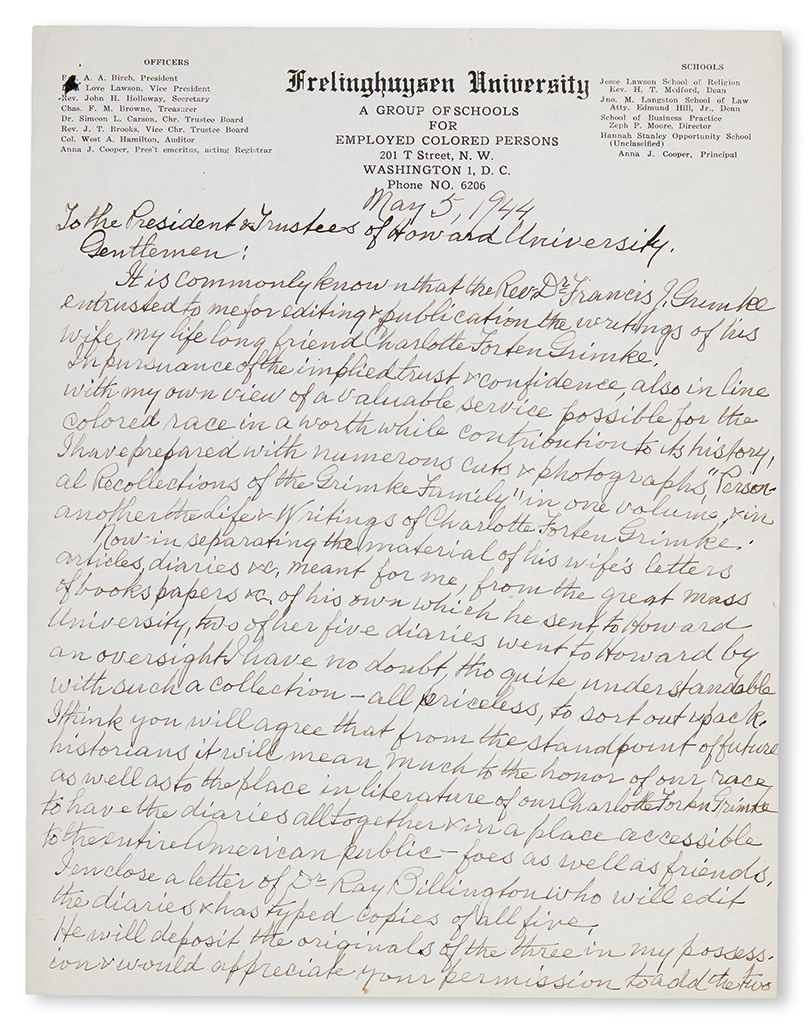 OFFICERS
A. A. Birch, President
Love Lawson, Vice President
Rev. John H. Holloway, Secretary
Chas. F. M. Browne, Treasurer
Dr. Simeon L. Carson, Chr. Trustee Board
Rev. J. T. Brooks, Vice Chr. Trustee Board
Col. West A. Hamilton, Auditor
Anna J. Cooper, Pres't emeritus, acting Registrar
Frelinghuysen University
A GROUP OF SCHOOLS
FOR
EMPLOYED COLORED PERSONS
201 T Street, N. W.
WASHINGTON 1, D. C.
Phone NO. 6206
SCHOOLS
Jesse Lawson School of Religion
Rev. H. T. Medford, Dean
Jno. M. Langston School of Law
Atty. Edmund Hill, Jr., Dean
School of Business Practice
Zeph P. Moore, Director
Hannah Stanley Opportunity School
(Unclassified)
Anna J. Cooper, Principal
May 5, 1944
To the President & Trustees of Howard University.
Gentlemen:
It is commonly known that the Rev. Dr. Francis J. Grimke
entrusted to me for editing & publication the writings of his
wife, my life long friend Charlotte Forten Grimke.
In pursuance of the implied trust & confidence, also in line
with my own view of a valuable service possible for the
colored race in a worth while contribution to its history,
I have prepared with numerous cuts & photographs, "Person-
al Recollections of the Grimke Family" in one volume, & in
another the Life & Writings of Charlotte Forten Grimke.
Now in separating the material of his wife's letters
articles, diaries &c, meant for me, from the great mass
of books papers &c. of his own which he sent to Howard
University, two of her five diaries went to Howard by
an oversight I have no doubt, tho quite understandable
with such a collection - all priceless, to sort out & pack.
I think you will agree that from the standpoint of future
historians it will mean much to the honor of our race
as well as to the place in literature of our Charlotte Forten Grimke
to have the diaries all together & in a place accessible
to the entire American public - foes as well as friends.
I enclose a letter of Dr. Ray Billington who will edit
the diaries & has typed copies of all five.
He will deposit the originals of the three in my possess-
ion & would appreciate your permission to add the two